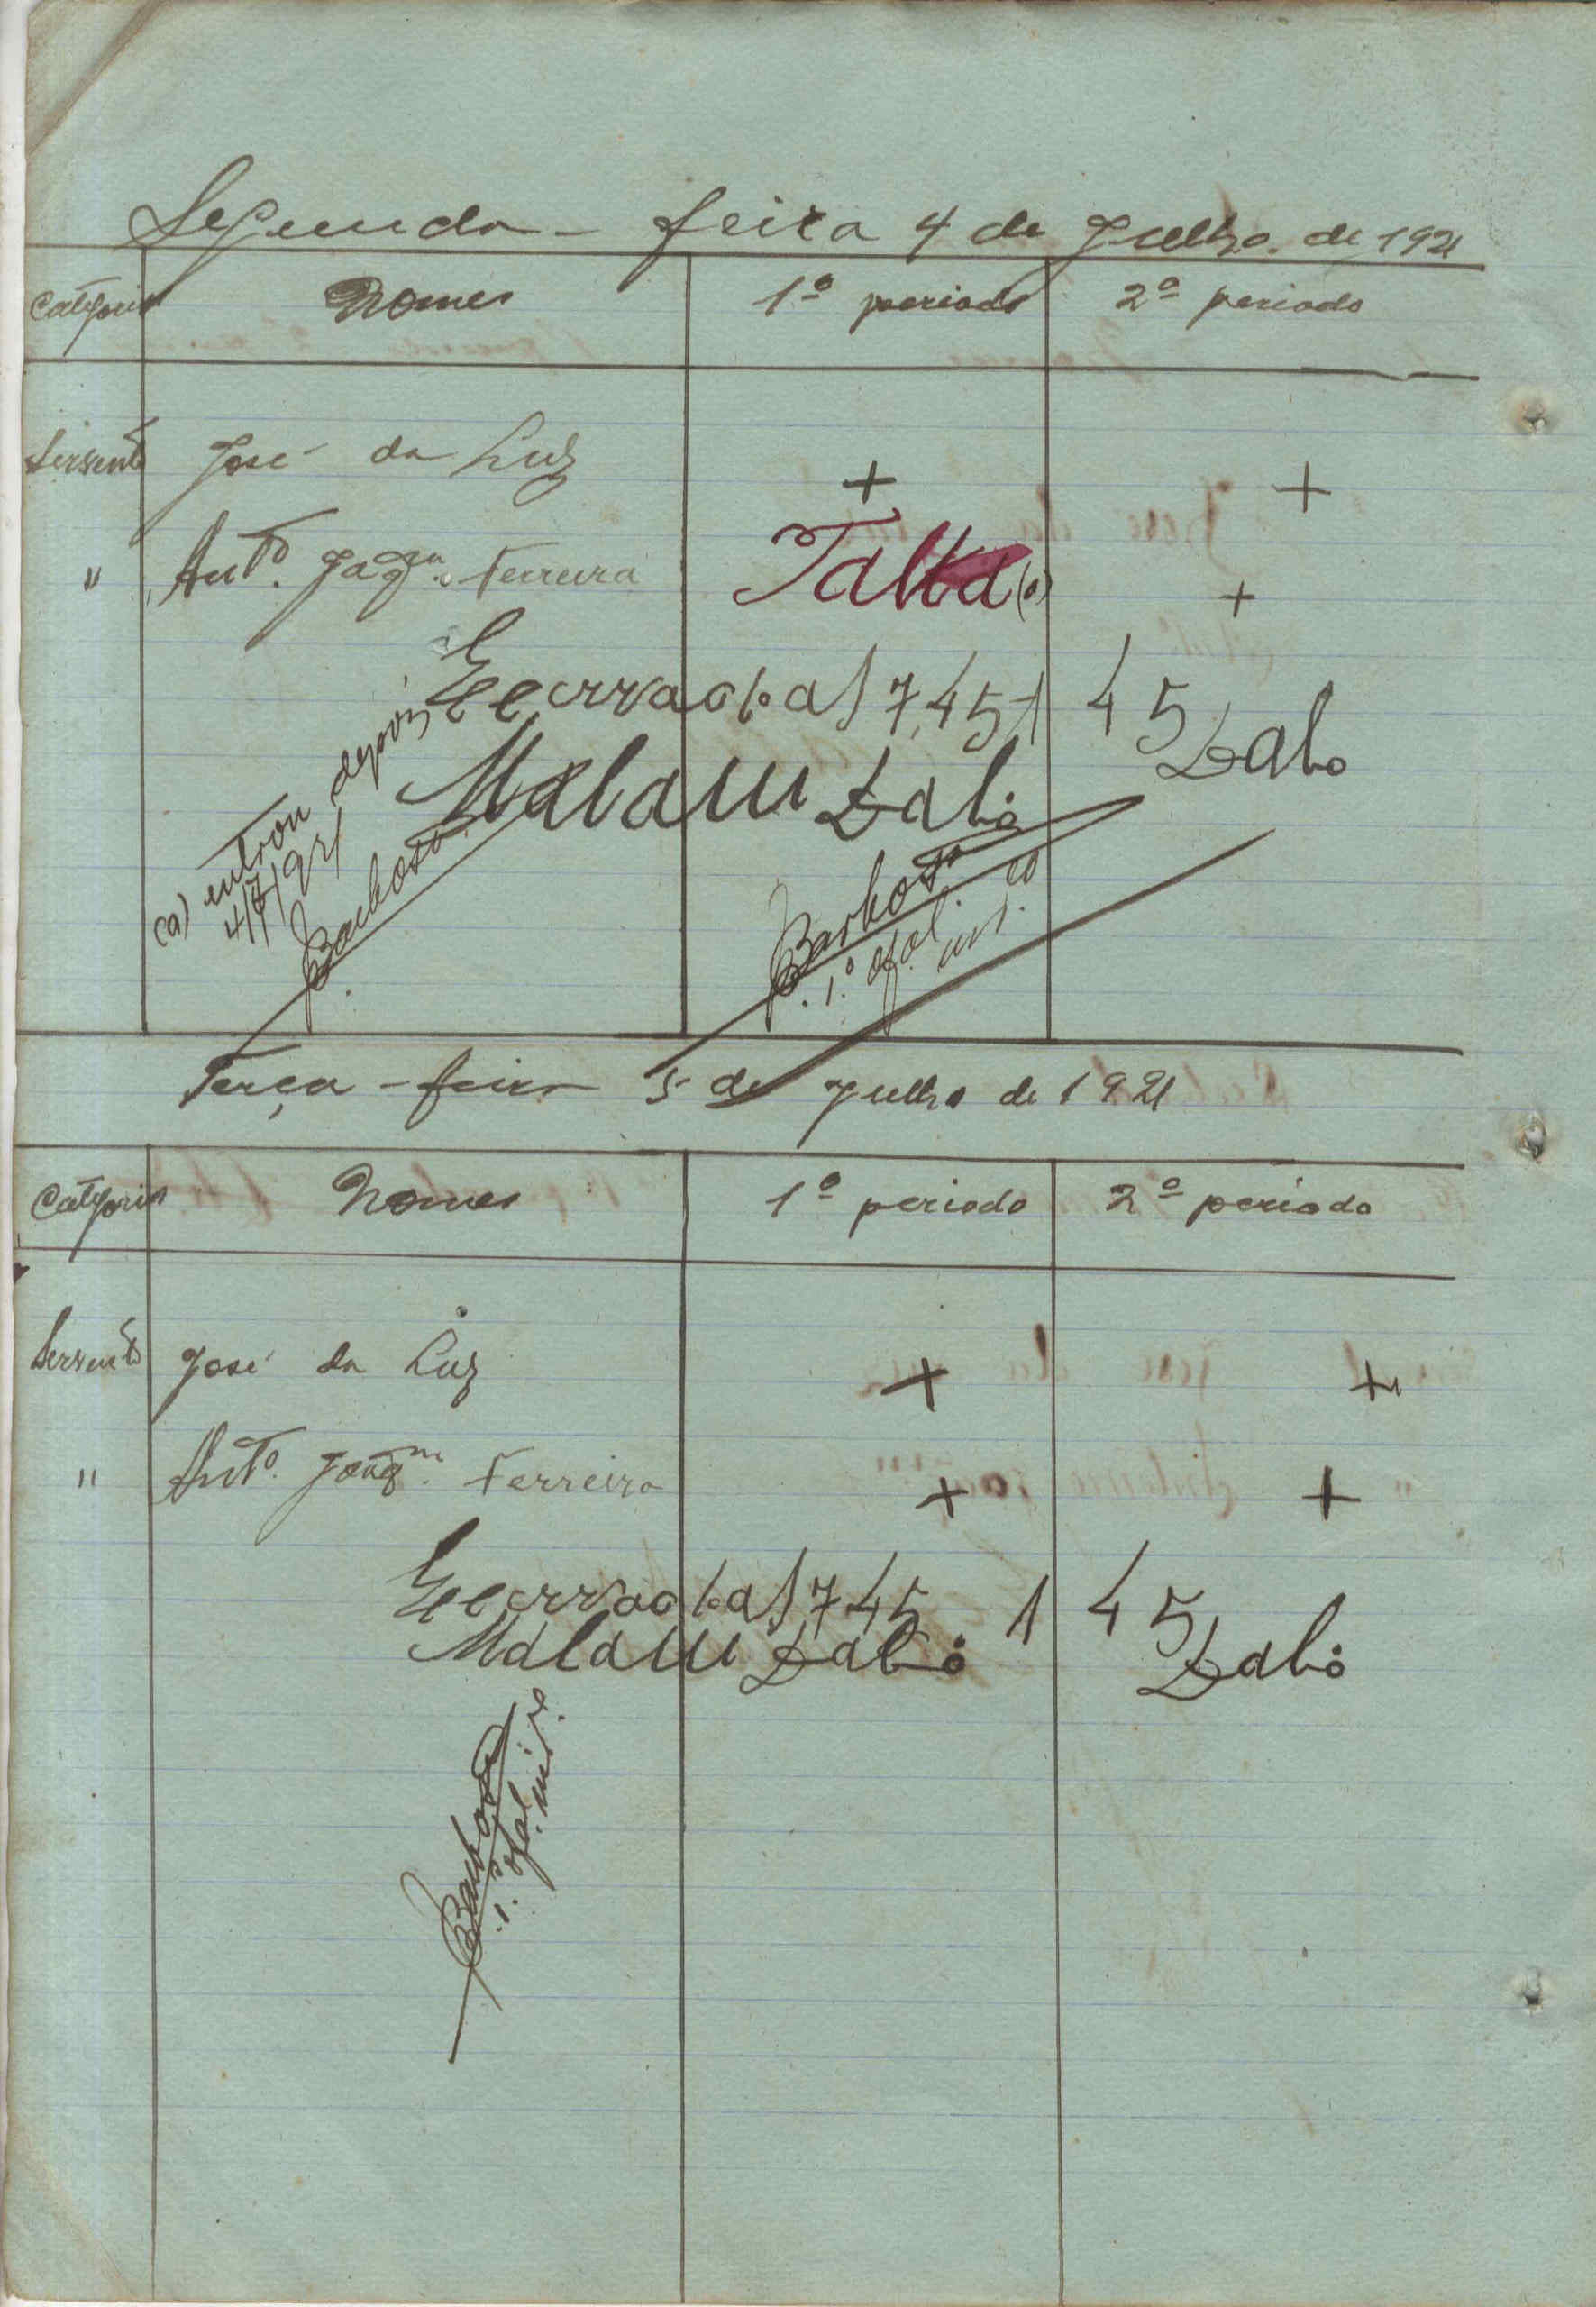 Segunda - feira 4 de Julho de 1921
Categoria Nomes 1º periodo 2º periodo
Servente José da Luz + +
" Antº. Joaqm. Ferreira Falta (a) +
Ecerrao po as 7 45 1 45 Dabo
Malam Dabó
(a) entrou depois
4/7/921
Barbosa
Barbosa
1.º ofal. intº
Terça - feira 5 de Julho de 1921
Categoria Nomes 1º periodo 2º periodo
Servente José da Luz + +
" Antº. Joaqm. Ferreira + +
Ecerrao po as 7 45 1 45
Malam Dabó Dabó
Barbosa
1.º ofal. int.